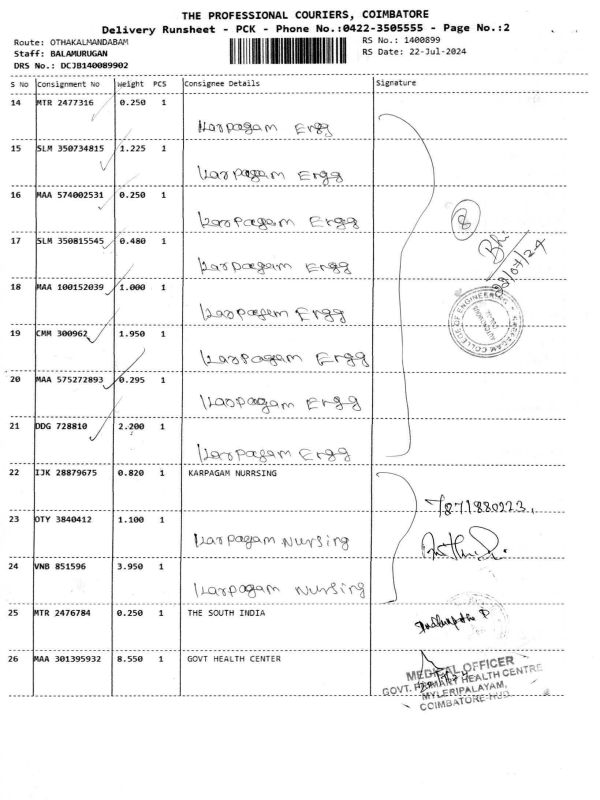 THE PROFESSIONAL COURIERS, COIMBATORE
Delivery Runsheet - PCK - Phone No.:0422-3505555 - Page No.:2
Route: OTHAKALMANDABAM
RS No.: 1400899
Staff: BALAMURUGAN
RS Date: 22-Jul-2024
DRS No.: DCJB140089902
S No Consignment No Weight PCS Consignee Details Signature
14 MTR 2477316 0.250 1
Karpagam Engg
15 SLM 350734815 1.225 1
Karpagam Engg
16 MAA 574002531 0.250 1
Karpagam Engg
8
17 SLM 350815545 0.480 1
Karpagam Engg
18 MAA 100152039 1.000 1
Karpagam Engg
KARPAGAM COLLEGE OF ENGINEERING
19 CMM 300962 1.950 1
Karpagam Engg
20 MAA 575272893 0.295 1
Karpagam Engg
21 DDG 728810 2.200 1
Karpagam Engg
22 IJK 28879675 0.820 1 KARPAGAM NURRSING
23 OTY 3840412 1.100 1
Karpagam Nursing
24 VNB 851596 3.950 1
Karpagam Nursing
25 MTR 2476784 0.250 1 THE SOUTH INDIA
26 MAA 301395932 8.550 1 GOVT HEALTH CENTER
MEDICAL OFFICER
GOVT. PRIMARY HEALTH CENTRE
MYLERIPALAYAM,
COIMBATORE-HUD